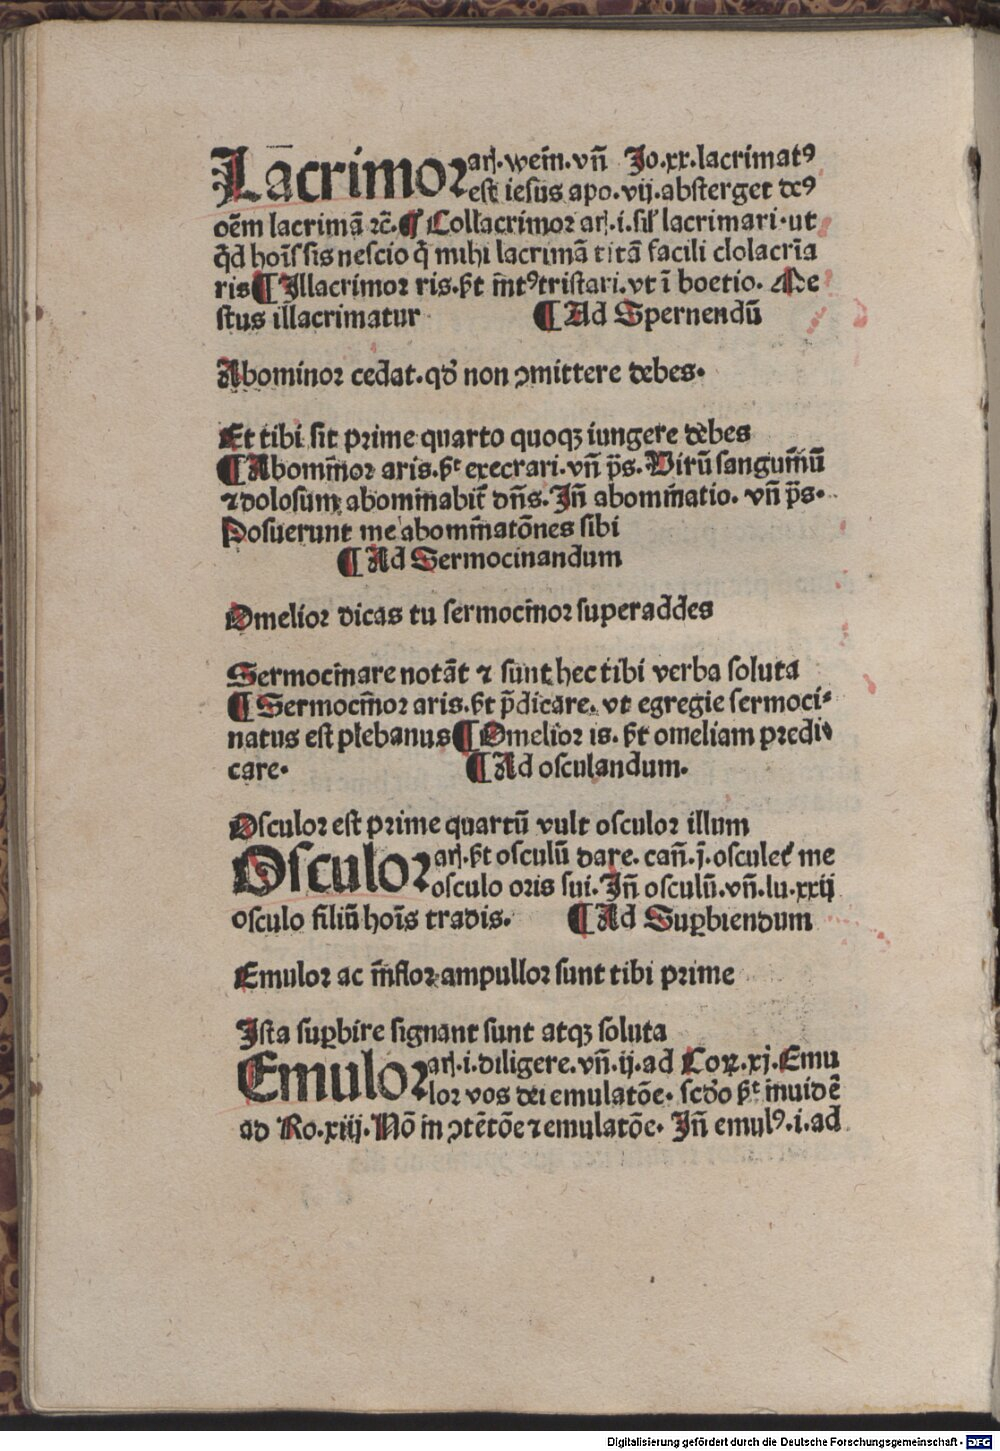 Lacrimoꝛ arꝭ.wein̄.vn̄ Jo.xx.lacrimatꝰ
est iesus apo.vij.absterget deꝰ
oēm lacrimā ⁊c̄.¶ Collacrimoꝛ arꝭ.i.sil̛ lacrimari.ut
q̄d hoīs sis nescio q̄ mihi lacrimā titā facili clolacrīa
ris ¶ Jllacrimoꝛ ris.ꝓt m̄tꝰ tristari.vt ī boetio. Me
stus illacrimatur ¶ Ad Spernendū
Abominoꝛ cedat.qđ non ꝯmittere debes.
Et tibi sit pꝛime quarto quoqꝫ iungere debes
¶ Abomīnoꝛ aris.ꝓt execrari.vn̄ p̄s.Virū sanguīnū
⁊ dolosum abominabit̄ dn̄s.Jn̄ abomīnatio. vn̄ p̄s.
Posuerunt me abomīnatōnes sibi
¶ Ad Sermocinandum
Omelioꝛ dicas tu sermocīnoꝛ superaddes
Sermocīnare notāt ⁊ sunt hec tibi verba soluta
¶ Sermocīnoꝛ aris.ꝓt p̄dicare. vt egregie sermoci⸗
natus est plebanus ¶ Omelioꝛ is.ꝓt omeliam pꝛedi⸗
care. ¶ Ad osculandum.
Osculoꝛ est pꝛime quartū vult osculoꝛ illum
Osculoꝛ arꝭ.ꝓt osculū dare. can̄.j.osculet̄ me
osculo oris sui.Jn̄ osculū.vn̄.lu.xxij
osculo filiū hoīs tradis. ¶ Ad Suꝑbiendum
Emuloꝛ ac īnfloꝛ ampulloꝛ sunt tibi pꝛime
Jsta suꝑbire signant sunt atqꝫ soluta
Emuloꝛ arꝭ.i.diligere.vn̄.ij.ad Coꝝ.xj.Emu
loꝛ vos dei emulatōe. scđo ꝓt inuidē
ad Ro.xiij.Nō in ꝯtētōe ⁊ emulatōe. Jn̄ emulꝰ.i.ad
Digitalisierung gefördert durch die Deutsche Forschungsgemeinschaft - DFG